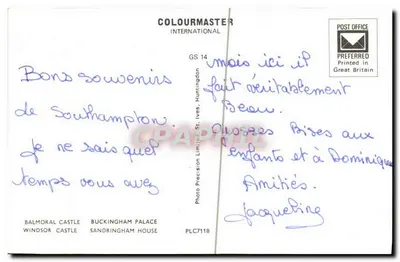 COLOURMASTER
INTERNATIONAL
POST OFFICE
PREFERRED
Printed in
Great Britain
GS 14
Bons souvenirs
de Southampton.
Je ne sais quel
temps vous avez
mais ici il
fait véritablement
Beau.
Grosses Bises aux
enfants et à Dominique
Amitiés.
Jacqueline
Photo Precision Limited, St. Ives, Huntingdon
BALMORAL CASTLE BUCKINGHAM PALACE
WINDSOR CASTLE SANDRINGHAM HOUSE
PLC7118